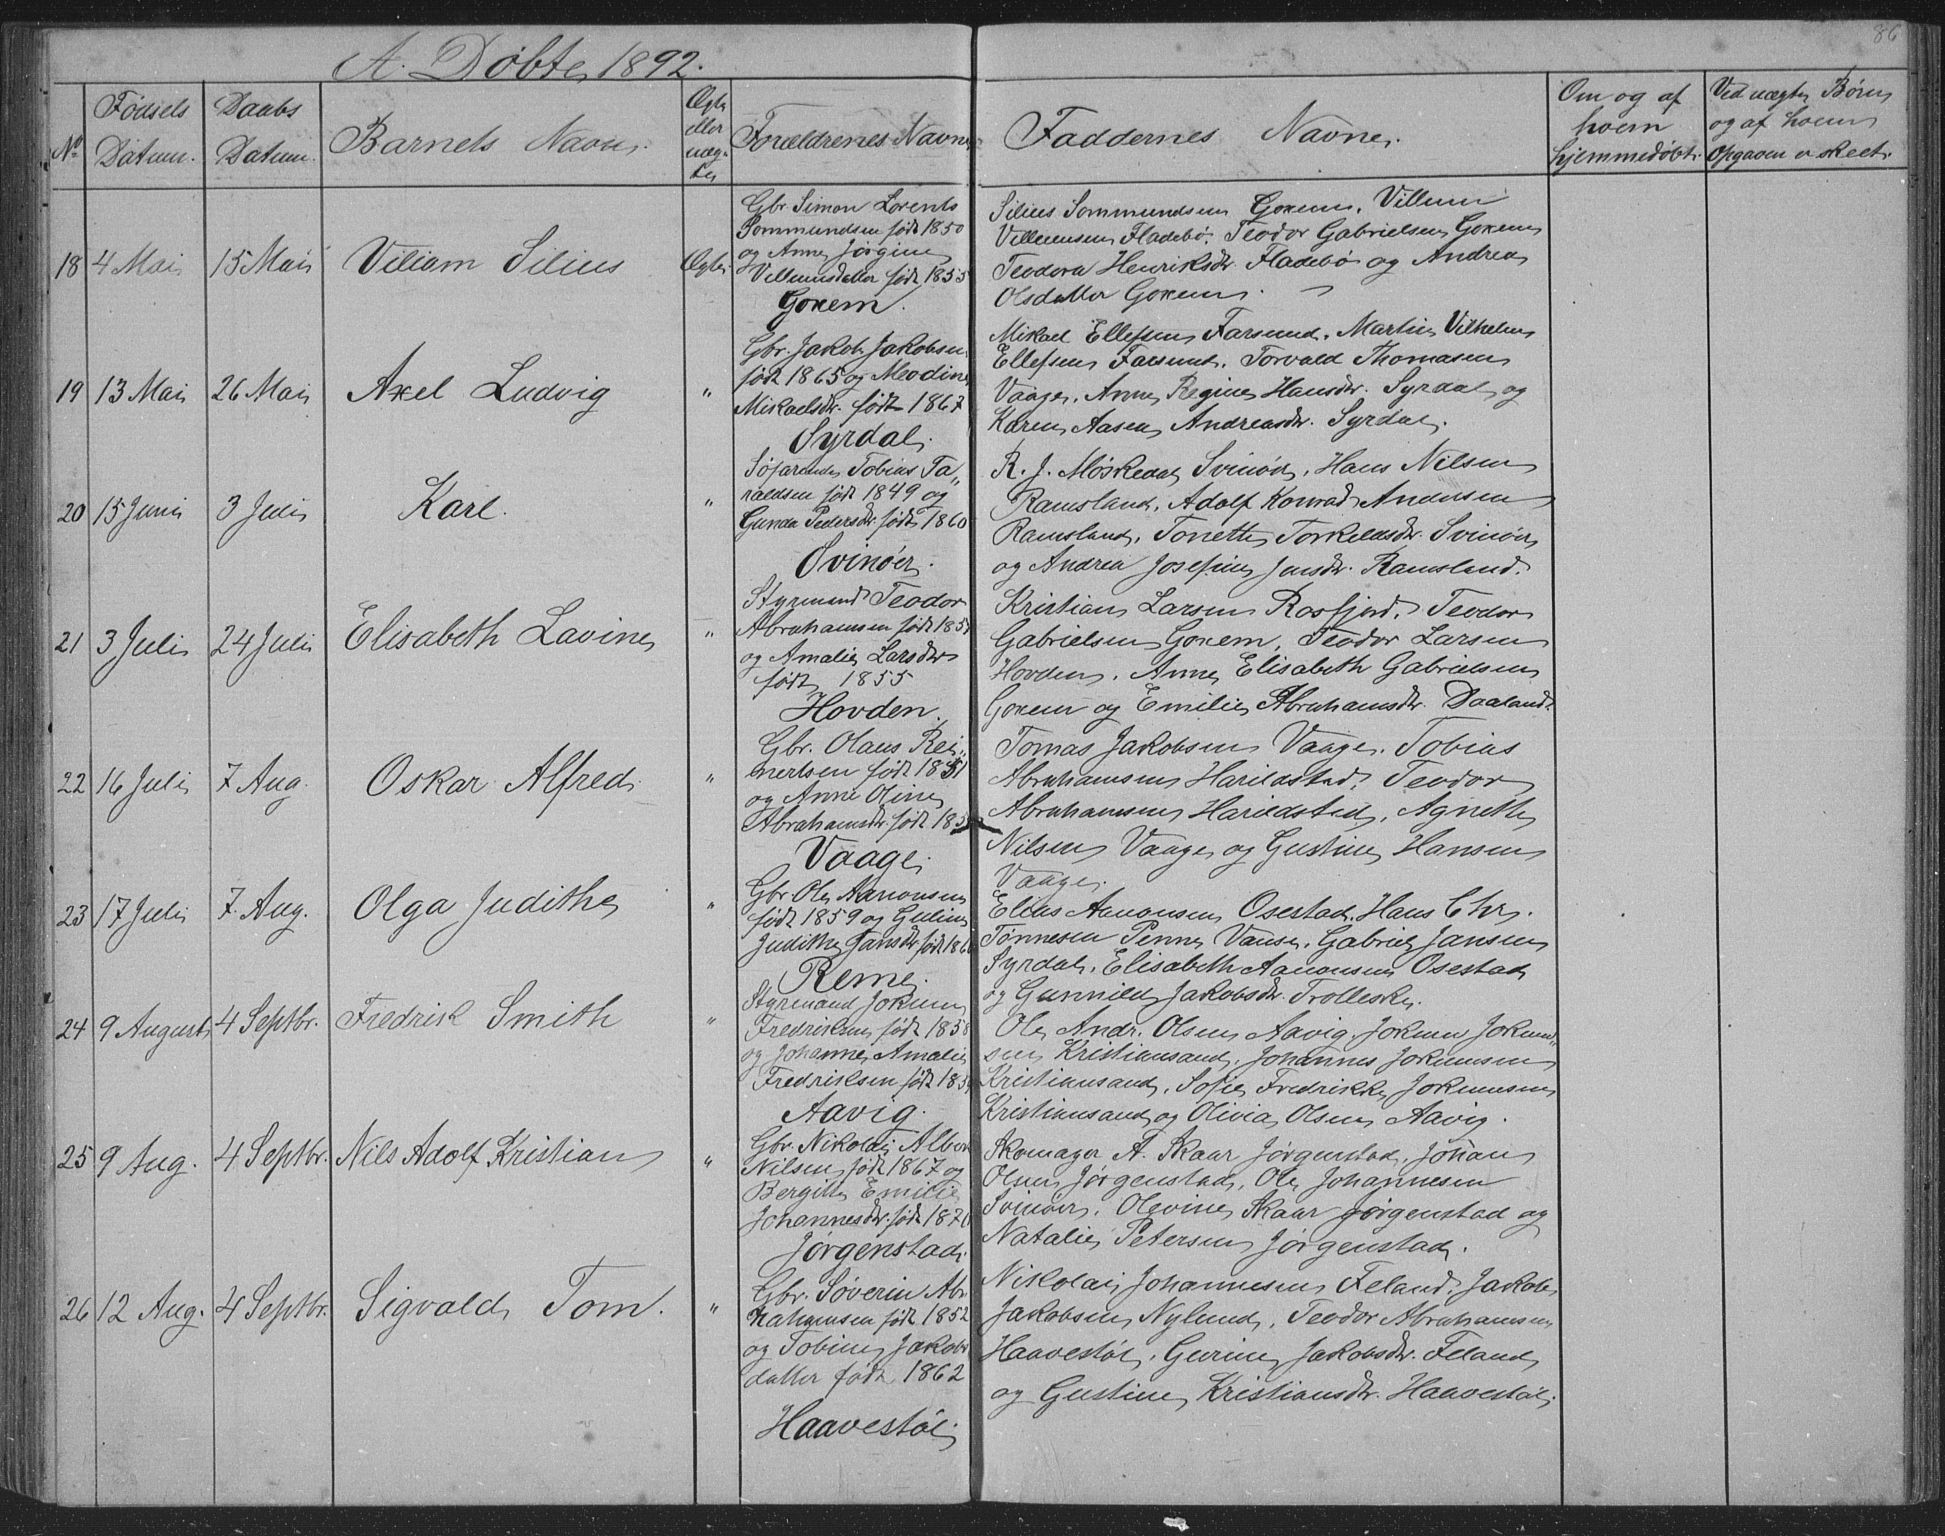 86
A. Döbte, 1892.
No
Fødsels
Datum.
Daabs
Datum.
Barnets Navn.
Ægte
eller
uæg-
te
Forældrenes Navne
Faddernes Navne.
Om og af
hvem
hjemmedøbt.
Ved uægte Børn
og af hvem
Opgaven er skeet.
18 4 Mai 15 Mai Viliam Silius Ægte
Gbr. Simon Lorents
Sommundsen født 1850
og Anne Jørgine
Villumsdatter født 1855
Goxem.
Silius Sommundsen Goxem, Villum
Villumsen Fladebø, Teodor Gabrielsen Goxem
Teodora Henriksdr. Fladebø og Andrea
Olsdatter Goxem.
19 13 Mai 26 Mai Axel Ludvig "
Gbr. Jakob Jakobsen
født 1865 og Meodine
Mikaelsdr. født 1867
Syrdal.
Mikael Ellefsen Farsund, Martin Vilhelm
Ellefsen Farsund, Torvald Thomasen
Vaage, Anne Regine Hansdr. Syrdal og
Karen Aasen Andreasdr. Syrdal.
20 15 Juni 3 Juli Karl. "
Søfarende Tobias Ta„
raldsen født 1849 og
Gunda Pedersdr. født 1860
Svinøer.
R. J. Møskedal Svinøer, Hans Nilsen
Ramsland, Adolf Konrad Andersen
Ramsland, Tonette Torkelsdr. Svinøer
og Andrea Josefine Jensdr. Ramsland.
21 3 Juli 24 Juli Elisabeth Lavine "
Styrmand Teodor
Abrahamsen født 185
og Amalie Larsdr
født 1855
Hovden.
Kristian Larsen Rosfjord, Teodor
Gabrielsen Goxem, Teodor Larsen
Hovden, Anne Elisabeth Gabrielsen
Goxem og Emilie Abrahamsdr. Daaland.
22 16 Juli 7 Aug. Oskar Alfred "
Gbr. Olaus Rei„
nertsen født 1851
og Anne Oline
Abrahamsdr. født 185
Vaage.
Tomas Jakobsen Vaage, Tobias
Abrahamsen Harildstad, Teodor
Abrahamsen Harildstad, Agnethe
Nilsen Vaage og Gustine Hansen
Vaage.
23 17 Juli 7 Aug. Olga Judithe "
Gbr. Ole Aanonsen
født 1859 og Guline
Judithe Jansdr født 186
Reme.
Elias Aanonsen Osestad, Hans Chr.
Tønnesen Penne Vanse, Gabriel Jansen
Syrdal, Elisabeth Aanonsen Osestad
og Gunnild Jakobsdr. Trolleske.
24 9 August 4 Septbr. Fredrik Smith "
Styrmand Jokum
Fredriksen født 1858
og Johanne Amalie
Fredriksen født 185
Aavig.
Ole Andr. Olsen Aavig, Jokum Jokum„
sen Kristiansand, Johannes Jokumsen
Kristiansand, Sofie Fredrikke Jokumsen
Kristiansand og Olivia Olsen Aavig.
25 9 Aug. 4 Septbr. Nils Adolf Kristian "
Gbr. Nikolai Albert
Nilsen født 1867 og
Bergitte Emilie
Johannesdr. født 187
Jørgenstad.
Skomager A. Skaar Jørgenstad, Johan
Olsen Jørgenstad, Ole Johannesen
Svinøer, Olevine Skaar Jørgenstad og
Natalie Petersen Jørgenstad.
26 12 Aug. 4 Septbr. Sigvald Tom. "
Gbr. Søverin Abr
hahamsen født 1852
og Tobine Jakobs
datter født 1862
Haavestøl.
Nikolai Johannesen Feland, Jakob
Jakobsen Nylund, Teodor Abrahamsen
Haavestøl, Gurine Jakobsdr. Feland
og Gustine Kristiansdr. Haavestøl.